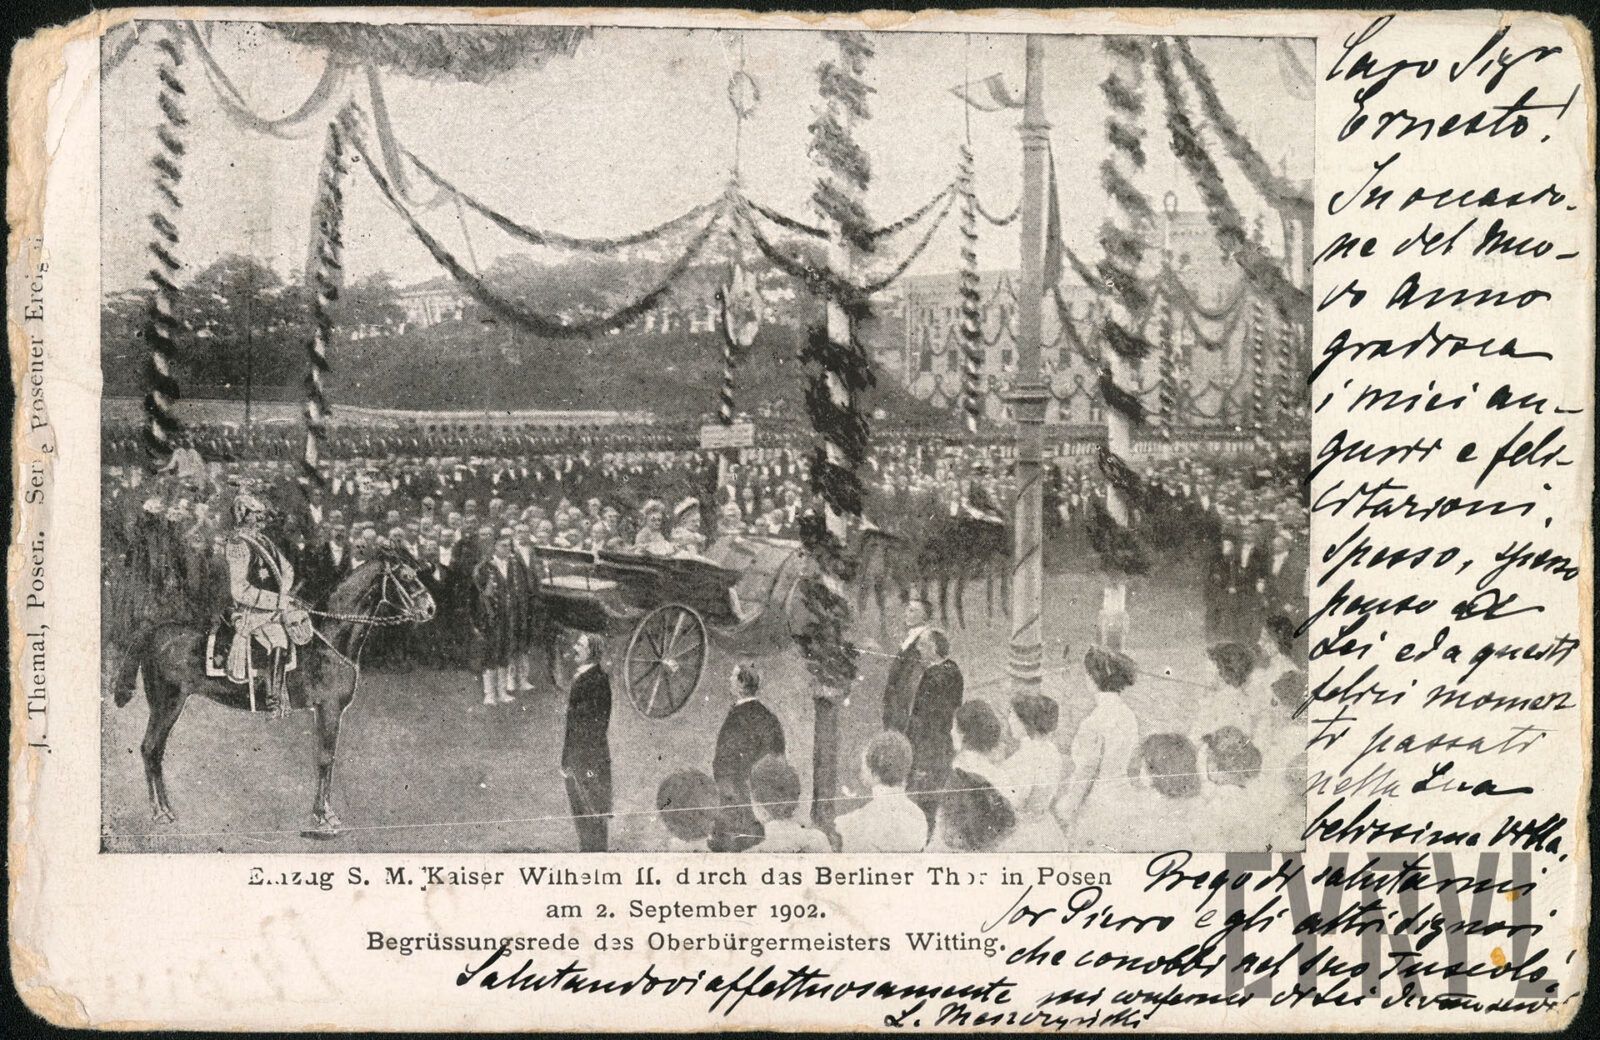 J. Themal, Posen. Serie Posener Ereig
Einzug S. M. Kaiser Wilhelm II. durch das Berliner Thor in Posen
am 2. September 1902.
Begrüssungsrede des Oberbürgermeisters Witting.
Caro Sigr
Ernesto!
In occasio-
ne del Nuo-
vo Anno
gradisca
i miei au-
gurii e feli-
citazioni.
Spesso, spesso
penso a
Lei ed a questi
felici momen
ti passati
nella Sua
belissima Villa.
Prego di salutarmi
Sor Pierro e gli altri Signori
che conobbi nel Suo Tusculo!
Salutandovi affettuosamente mi confermo di Lei
L.
CYRYL